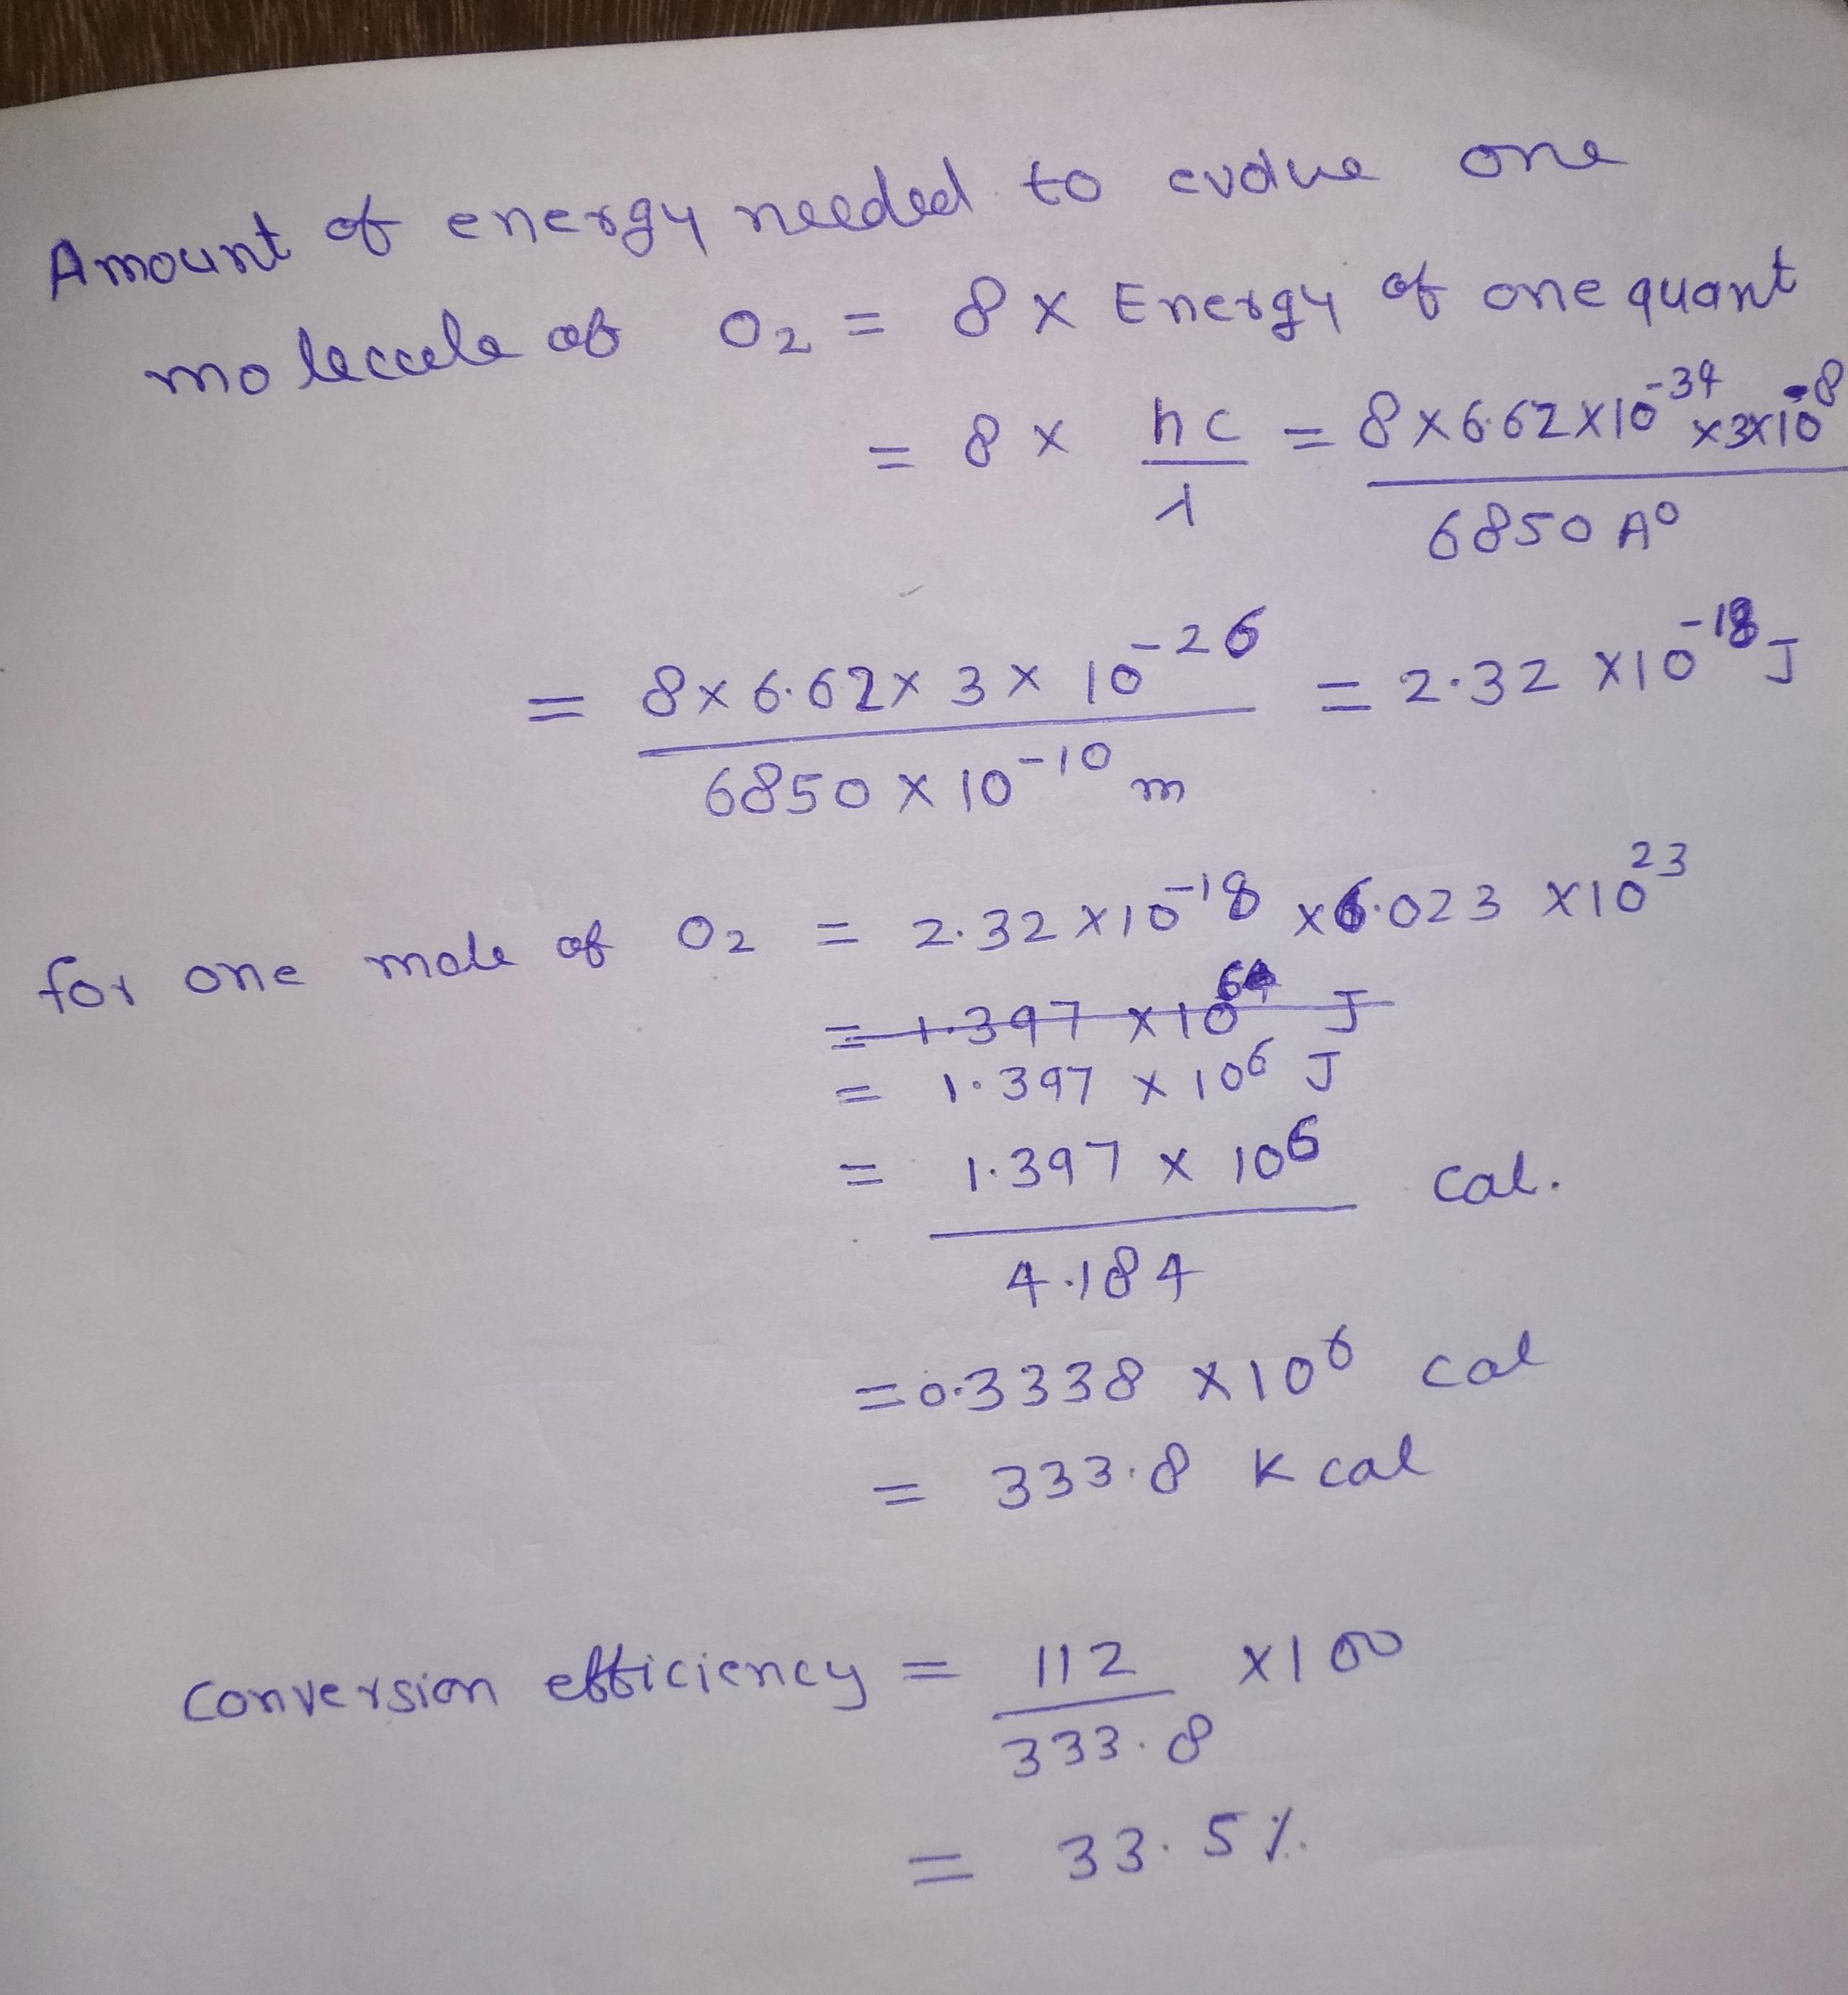 Amount of energy needed to evolve one
molecule of O₂ = 8 × Energy of one quant
= 8 × hc/λ = 8×6.62×10⁻³⁴×3×10⁸/6850 A⁰
= 8×6.62×3×10⁻²⁶/6850×10⁻¹⁰ m = 2.32×10⁻¹⁸ J
for one mole of O₂ = 2.32×10⁻¹⁸ ×6.023 ×10²³
= 1.397 ×10⁶ J
= 1.397 × 10⁶ J
= 1.397 × 10⁶/4.184 cal.
=0.3338 ×10⁶ cal
= 333.8 Kcal
Conversion efficiency = 112/333.8 ×100
= 33.5%